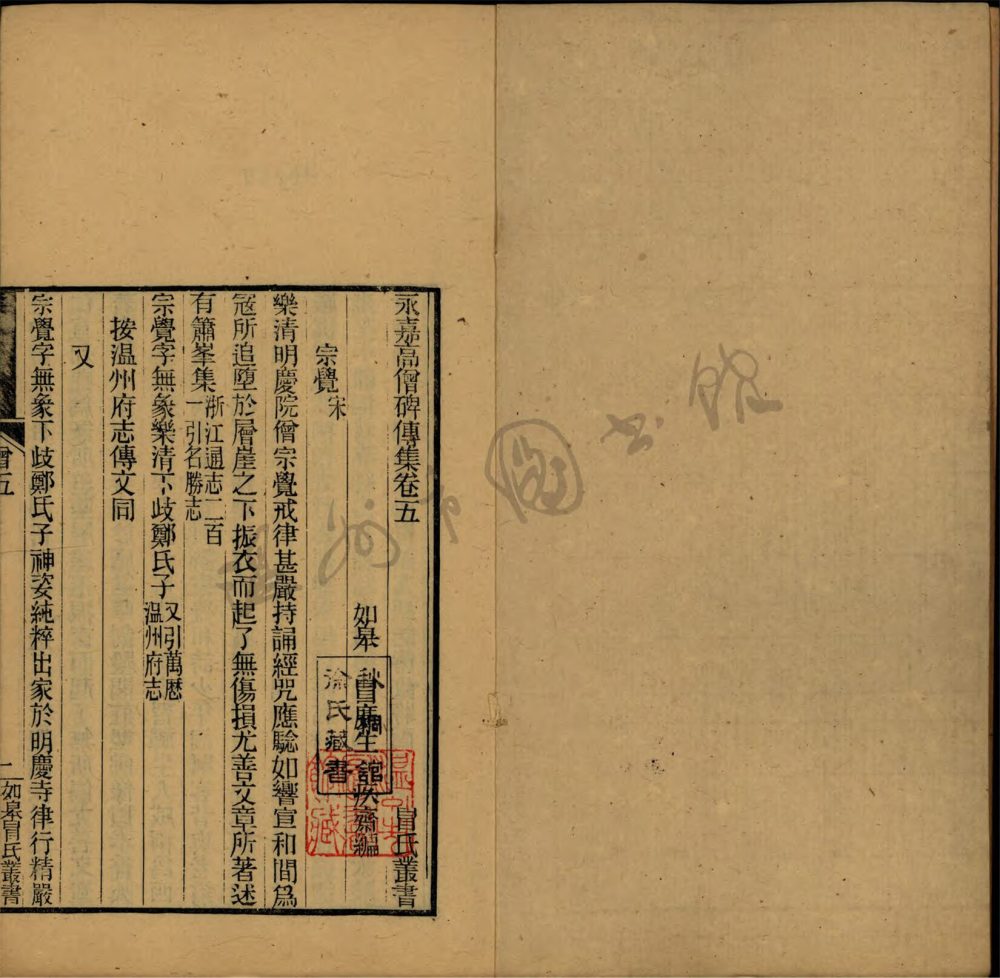 永嘉高僧碑傳集卷五 冒氏叢書
如皋 冒廣生 疚齋編
宗覺宋
樂清明慶院僧宗覺戒律甚嚴持誦經咒應驗如響宣和間爲
寇所追墮於層崖之下振衣而起了無傷損尤善文章所著述
有簫峯集浙江通志二百
一引名勝志
宗覺字無象樂清下歧鄭氏子又引萬厯
温州府志
按温州府志傳文同
又
宗覺字無象下歧鄭氏子神姿純粹出家於明慶寺律行精嚴
僧五
一
如皋冒氏叢書
徐氏藏書
温州市圖書館